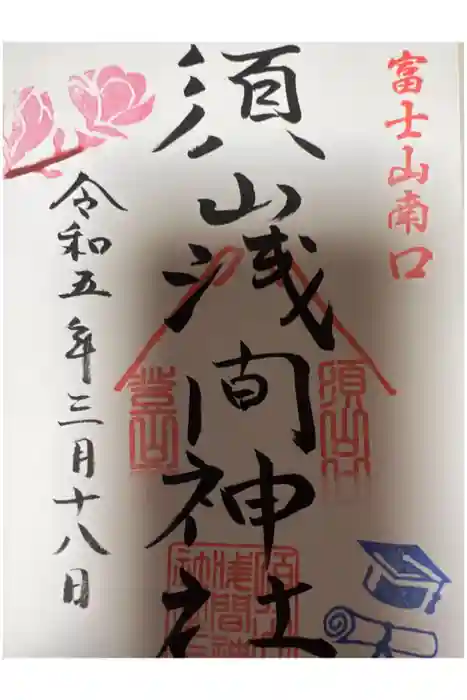 富士山南口
須山浅間神社
令和五年三月十八日
須山
登山